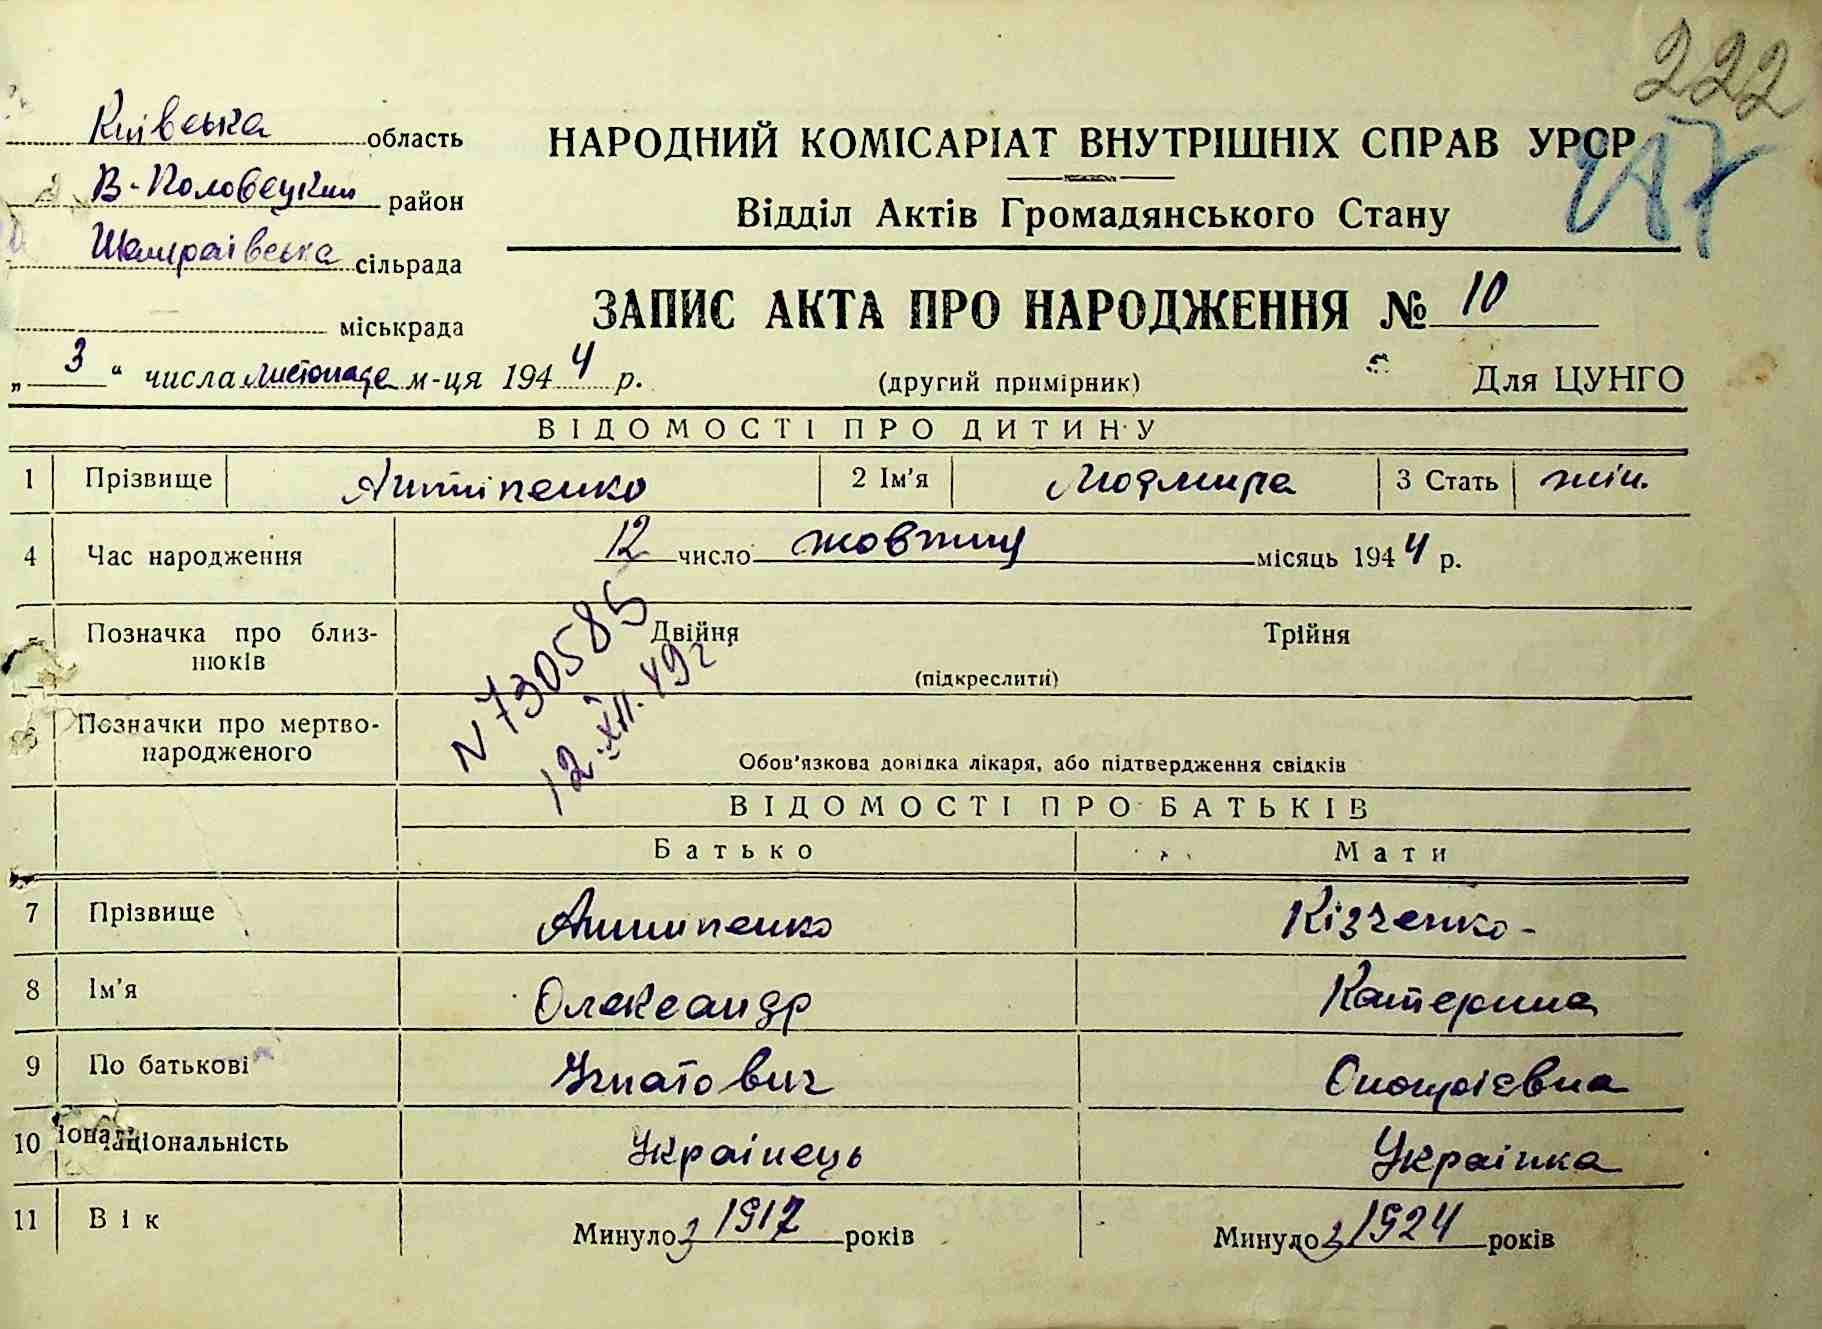 222
247
Київська область
В-Половецкий район
Шамраївська сільрада
міськрада
НАРОДНИЙ КОМІСАРІАТ ВНУТРІШНІХ СПРАВ УРСР
Відділ Актів Громадянського Стану
ЗАПИС АКТА ПРО НАРОДЖЕННЯ № 10
„ 3 “ числа листопада м-ця 1944 р.
(другий примірник)
Для ЦУНГО
ВІДОМОСТІ ПРО ДИТИНУ
1 Прізвище Антіпенко 2 Ім'я Людмира 3 Стать жін.
4 Час народження 12 число жовтня місяць 1944 р.
Позначка про близ-
нюків
Двійня Трійня
(підкреслити)
N 730585
12.XII.192
Позначки про мертво-
народженого
Обов'язкова довідка лікаря, або підтвердження свідків
ВІДОМОСТІ ПРО БАТЬКІВ
Батько Мати
7 Прізвище Антипенко Кізченко-
8 Ім'я Олександр Катерина
9 По батькові Гнатович Онопрієвна
10 аціональність Українець Українка
11 Вік Минуло з 1917 років Минуло з 1924 років